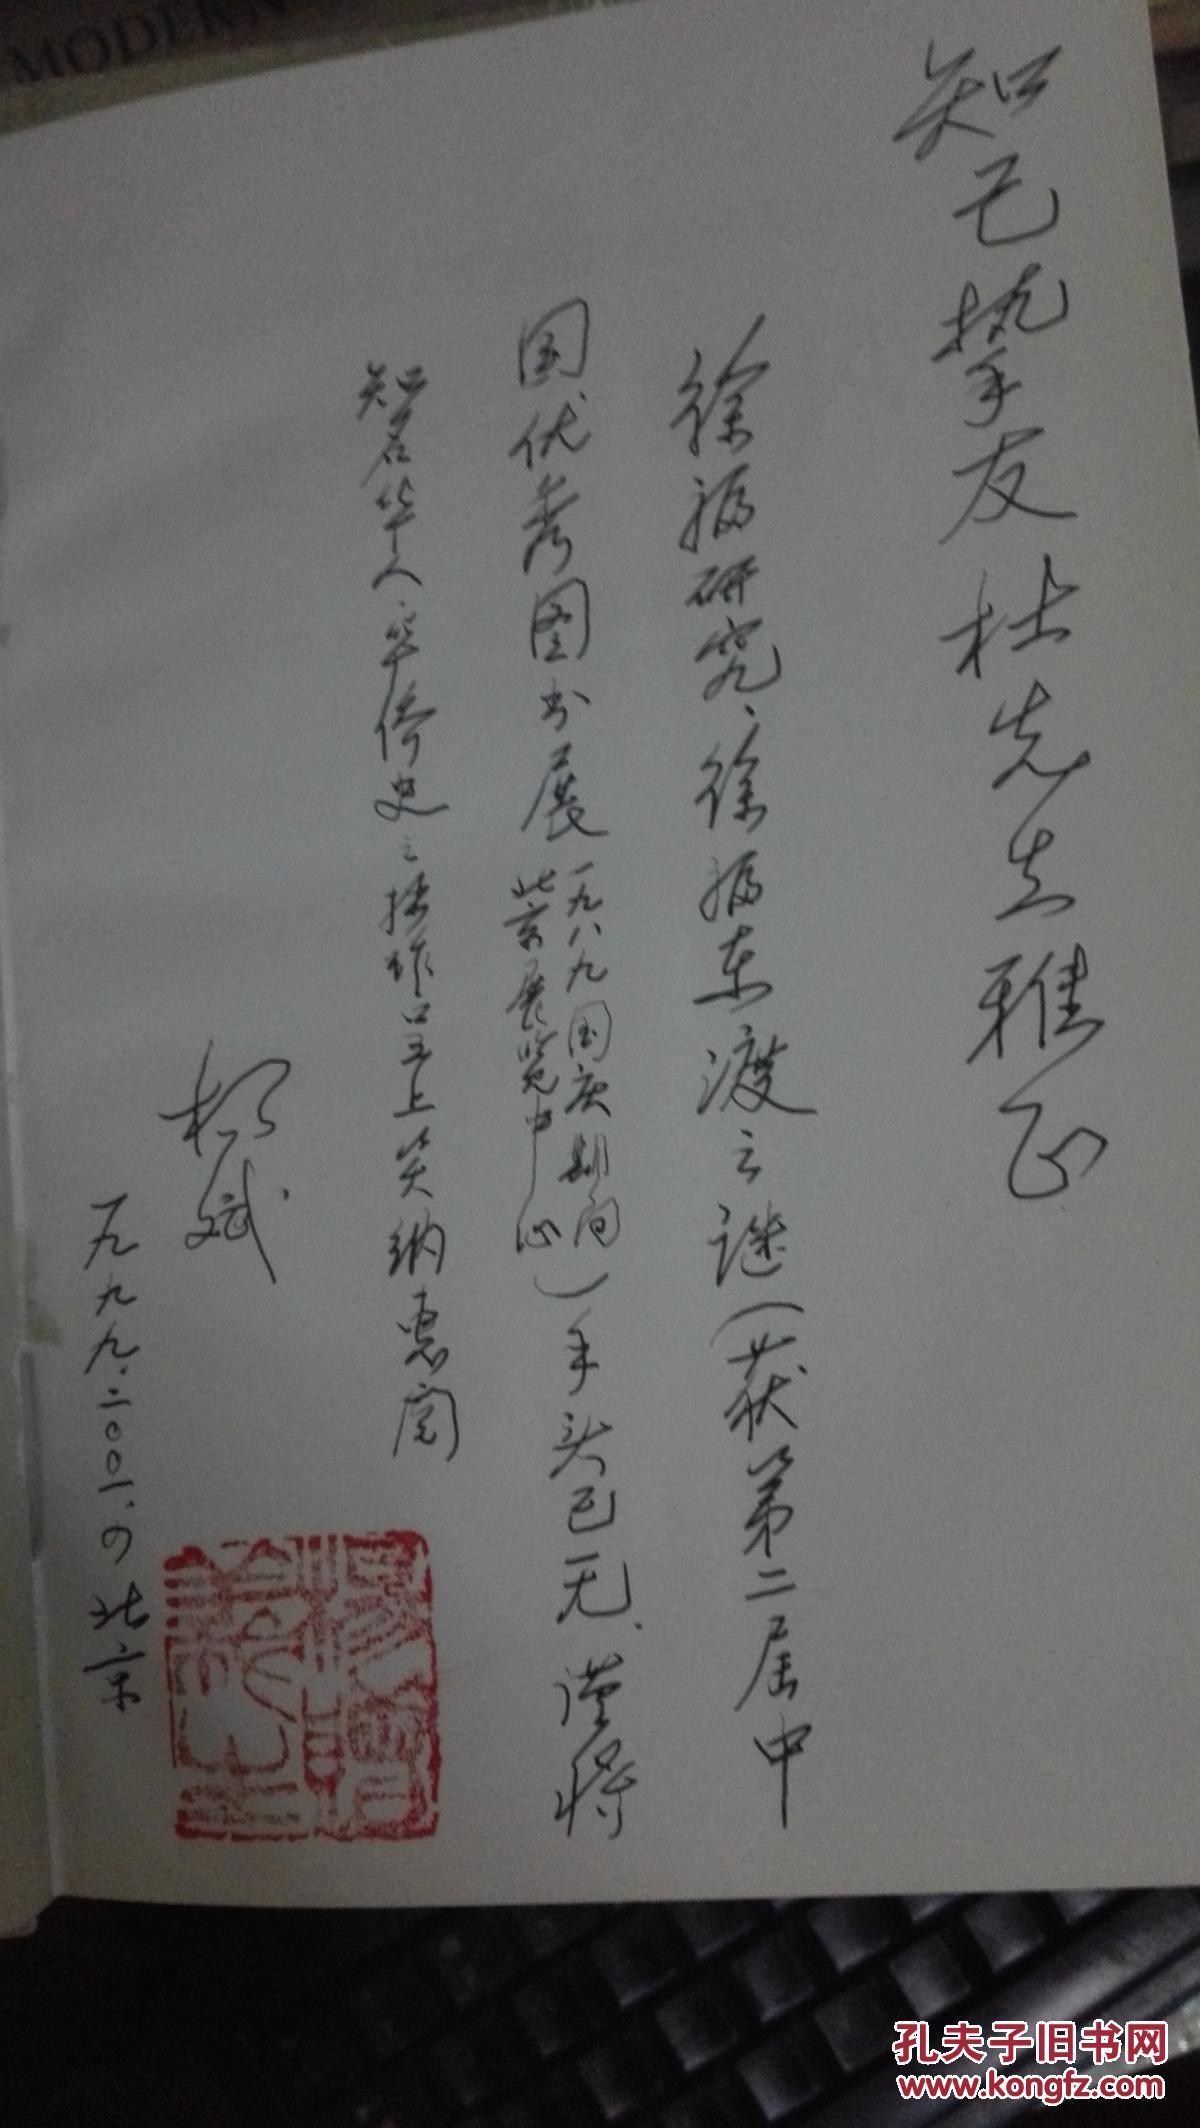 MODERN
知己挚友杜先生雅正
徐福研究、徐福东渡之谜（获第二届中
国优秀图书展
一九八九国庆期间
北京展览中心）
手头已无、谨将
知名华人、华侨史之拙作呈上笑纳惠阅
斌
一九九九.二〇〇一、の北京
孔夫子旧书网
www.kongfz.com